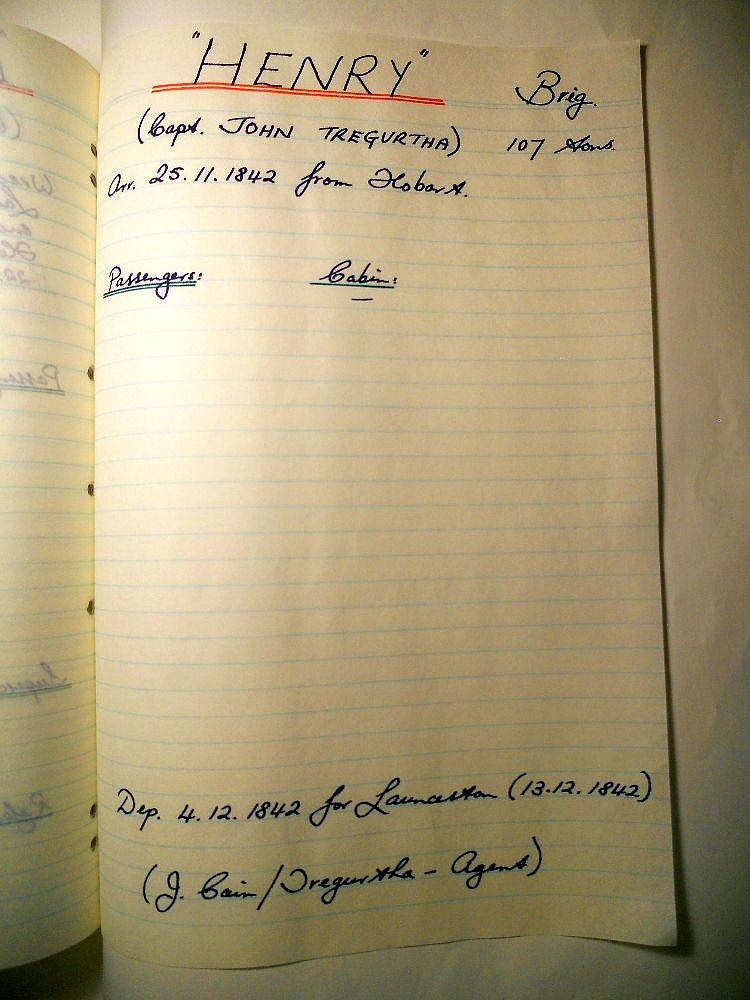 "HENRY" Brig.
(Capt. JOHN TREGURTHA) 107 tons.
Arr. 25.11.1842 from Hobart.
Passengers: Cabin:
—
Dep. 4.12.1842 for Launceston (13.12.1842)
(J. Cain/Tregurtha - Agent)